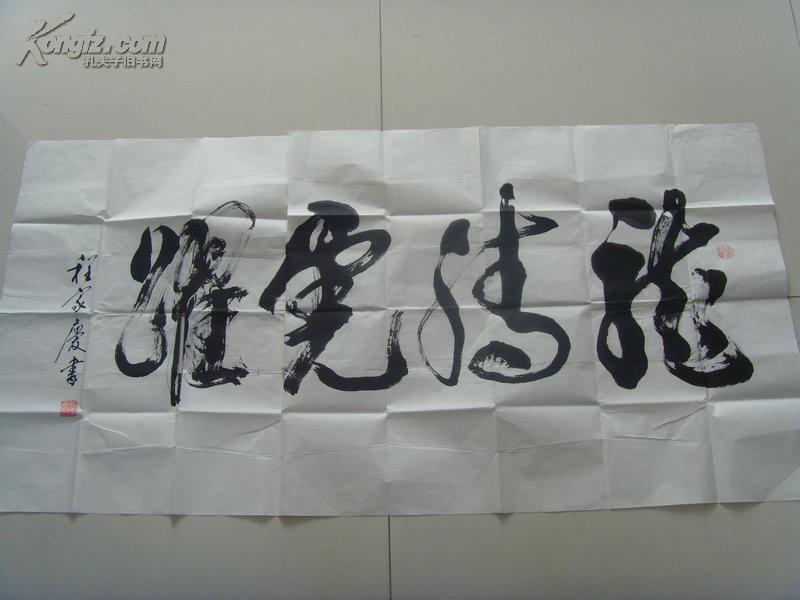 龍騰虎躍
程家慶書
Kongfz.com
孔夫子旧书网